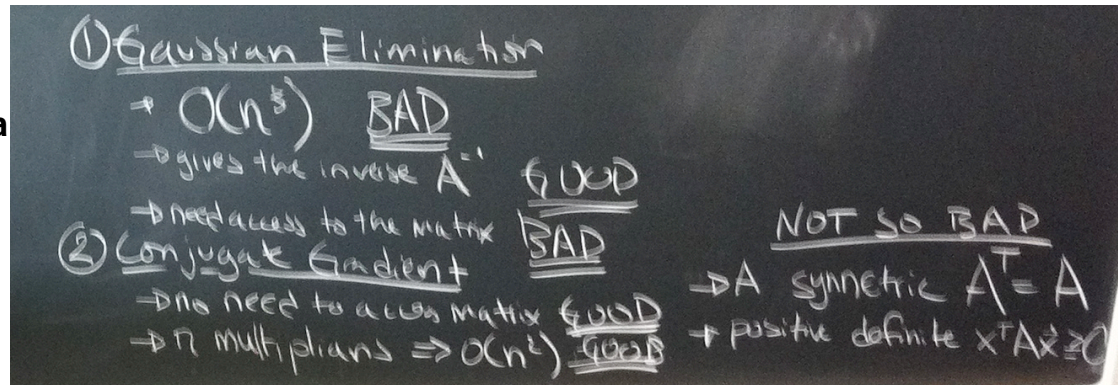 a
① Gaussian Elimination
→ O(n³) BAD
→ gives the inverse A⁻¹ GOOD
→ need access to the matrix BAD
② Conjugate Gradient
→ no need to access matrix GOOD
→ n multiplians ⇒ O(n²) GOOD
NOT SO BAD
→ A symnetric Aᵀ = A
→ positive definite xᵀAx ≥ 0